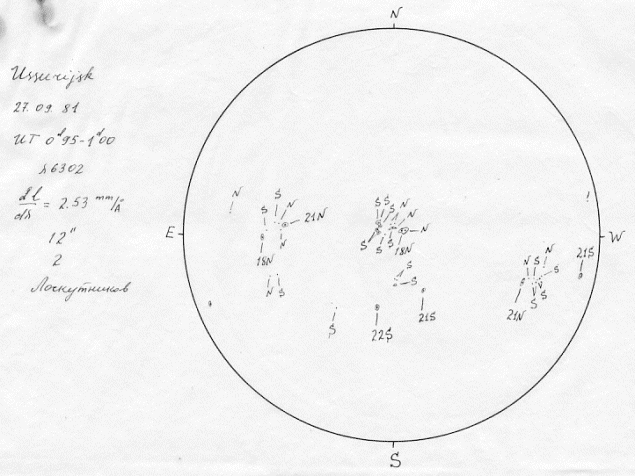 N
Ussurijsk
27. 09. 81
UT 0ᵈ95-1ᵈ00
λ6302
dl/dλ = 2.53 mm/Å
12"
2
Лоскутников
E
W
S
N
S
N
21N
S
N
18N
N S
S S S N
N
N
S
S S
18N
S
S
21S
22S
S
N
N S
S
21S
21N
S S